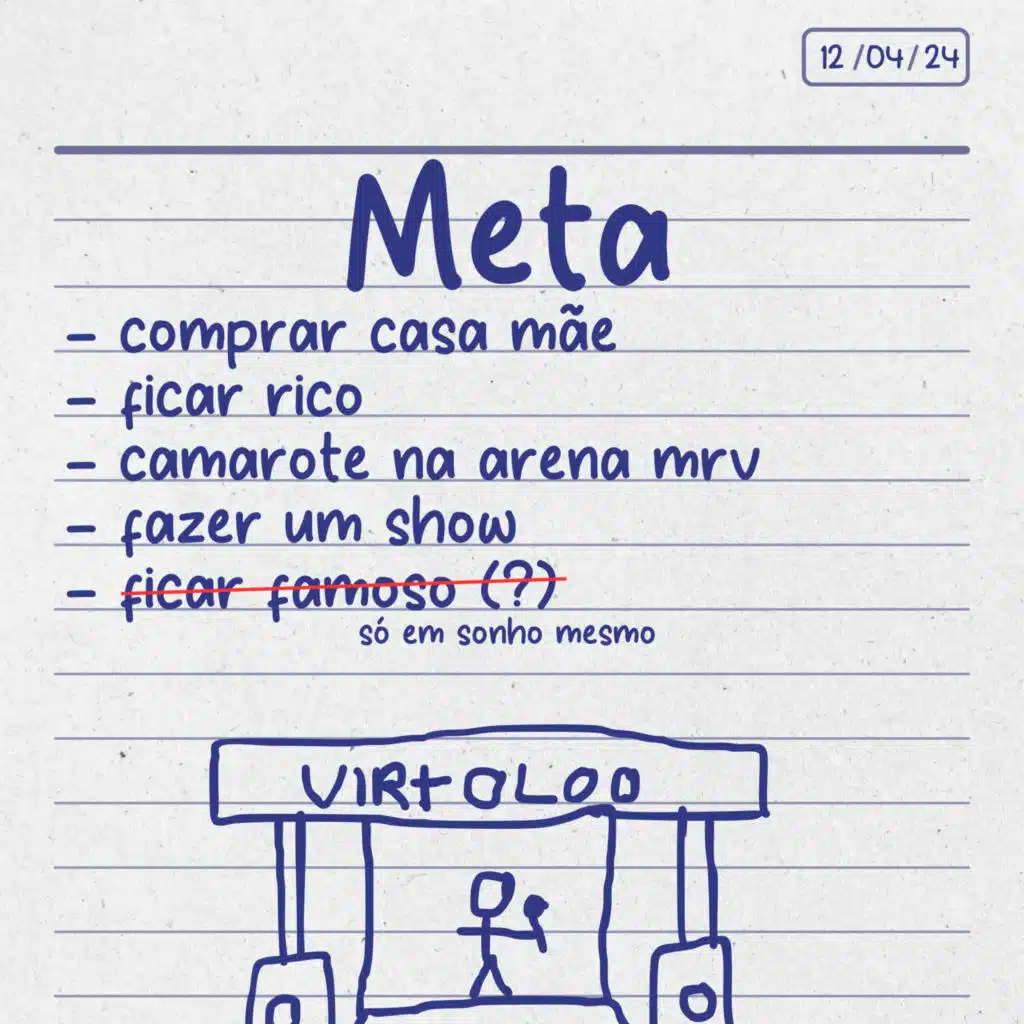 12/04/24
Meta
- comprar casa mãe
- ficar rico
- camarote na arena mrv
- fazer um show
- ficar famoso (?)
só em sonho mesmo
VIRtOLOO